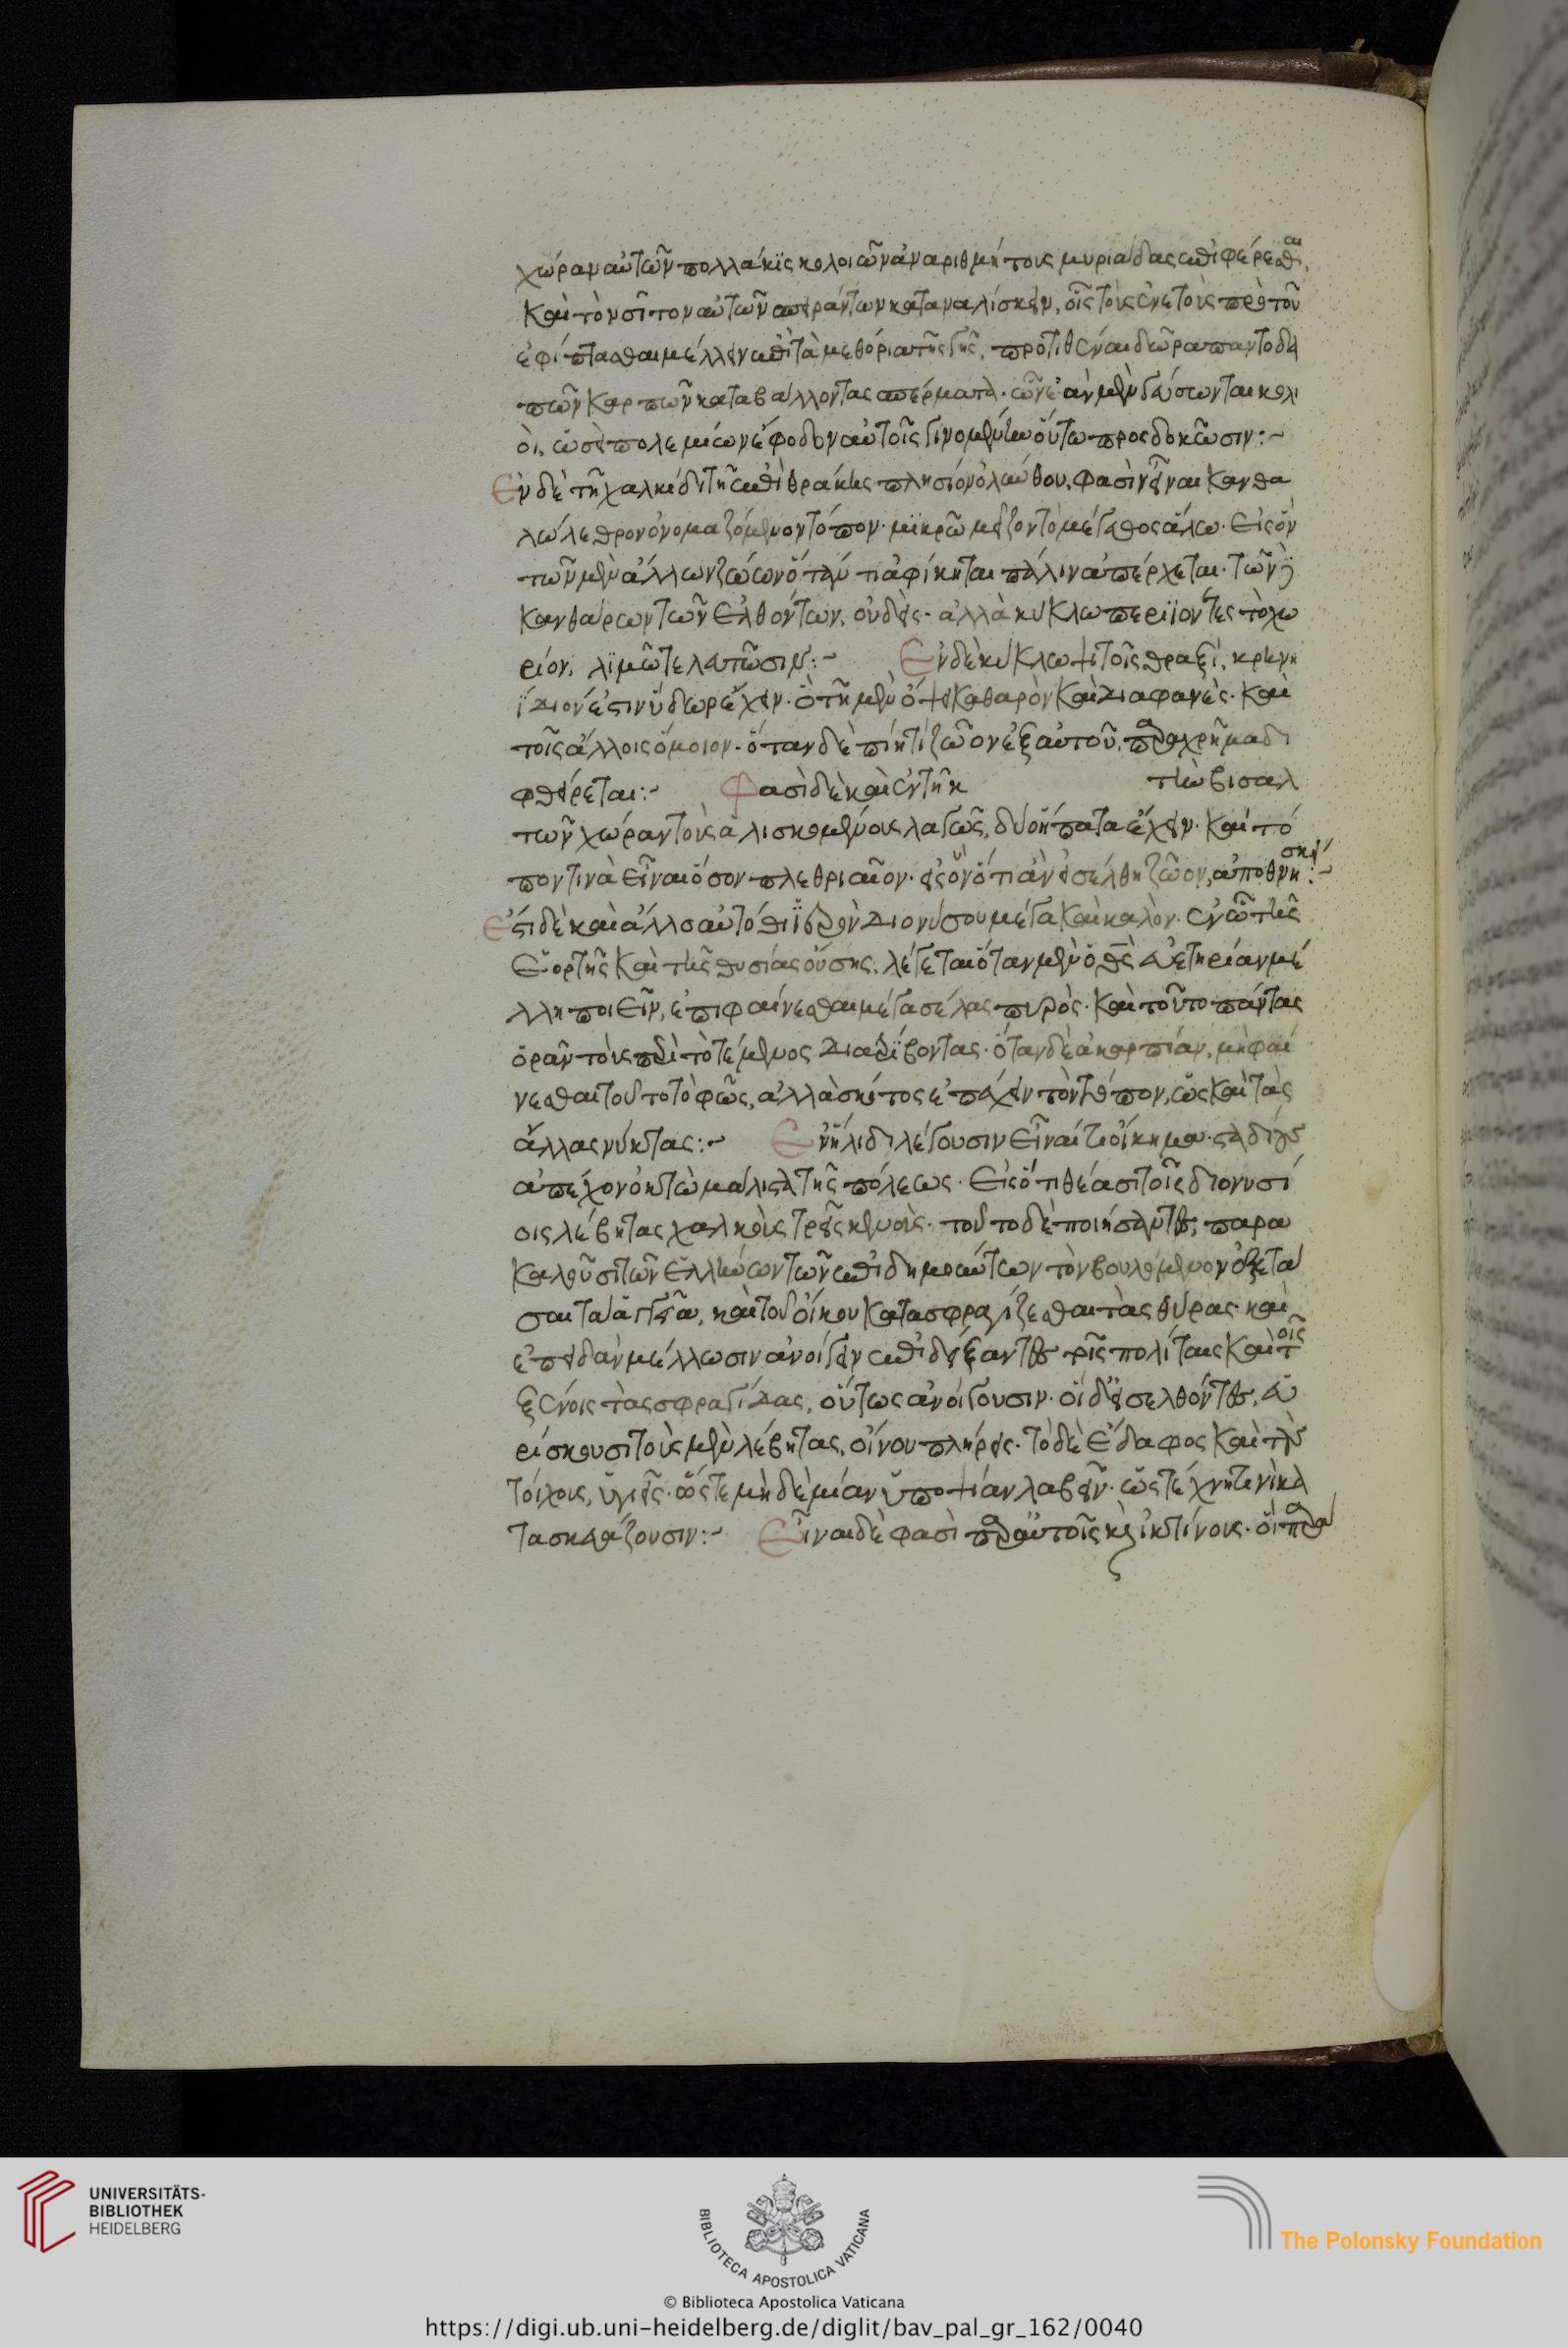 χώραν αὐτῶν πολλάκις κολοιῶν ἀναριθμήτους μυριάδας ἐπιφέρεσθαι,
καὶ τὸν σῖτον αὐτῶν σπειράντων καταναλίσκειν, οἷς τοὺς ἐνετοὺς πρὸ τοῦ
ἐφίπτασθαι μέλλειν ἐπὶ τὰ μεθόρια τῆς γῆς, προτιθέναι δῶρα παντοδα
πῶν καρπῶν καταβάλλοντας σπέρματα. ὧν ἐὰν μὲν γεύσωνται κολι
οὶ, ὡς ἐ πολεμίων ἔφοδον αὐτοῖς γινομένην οὕτω προσδοκῶσιν:~
Εν δὲ τῆ χαλκιδικῆ τῆ ἐπὶ θράκης πλησίον ὀλύνθου, φασὶν εἶναι κανθα
ρώλεθρον ὀνομαζόμενον τόπον. μικρῶ μεῖζον τὸ μέγαθος ἅλω. εἰς ὃν
τῶν μὲν ἄλλων ζώων ὅταν τι ἀφίκηται πάλιν ἀπέρχεται. τῶν δὲ
κανθάρων τῶν ἐλθόντων, οὐδείς. ἀλλὰ κύκλω περιϊόντες τὸ χω
ρίον, λιμῶ τελευτῶσιν:~ Εν δὲ κύκλωψι τοῖς θραξί, κρηνι
ίδιόν ἐστιν ὕδωρ ἔχειν. ὃ τῆ μὲν ὄψει καθαρὸν καὶ διαφανὲς. καὶ
τοῖς ἄλλοις ὅμοιον. ὅταν δὲ πίη τι ζῶον ἐξ αὐτοῦ, παραχρῆμα δι
φθείρεται:~ Φασὶ δὲ καὶ ἐν τῆ κ τὴν βισαλ
τῶν χώραν τοὺς ἁλισκομένους λαγῶς, δύο ἥπατα ἔχειν. καὶ τό
πον τινὰ εἶναι ὅσον πλεθριαῖον. εἰς ὃν ὅ τι ἂν εἰσέλθη ζῶον, ἀποθνήσκει:~
Εστι δὲ καὶ ἄλλο αὐτόθι ἱερὸν διονύσου μέγα καὶ καλὸν. ἐν ὧ τῆς
ἑορτῆς καὶ τῆς θυσίας οὔσης, λέγεται ὅταν μὲν ὁ θεὸς εὐετηρίαν μέ
λλη ποιεῖν, ἐπιφαίνεσθαι μέγα σέλας πυρὸς. καὶ τοῦτο πάντας
ὁρᾶν τοὺς περὶ τὸ τέμενος διατρίβοντας. ὅταν δὲ ἀκαρπίαν, μὴ φαί
νεσθαι τοῦτο τὸ φῶς, ἀλλὰ σκότος ἐπέχειν τὸν τόπον, ὡς καὶ τὰς
ἄλλας νύκτας:~ Εν ἤλιδι λέγουσιν εἶναί τι οἴκημα. σταδίους
ἀπέχον ὀκτὼ μάλιστα τῆς πόλεως. εἰς ὃ τιθέασι τοῖς διονυσί
οις λέβητας χαλκοῦς τρεῖς κενοὺς. τοῦτο δὲ ποιήσαντες, παρα
καλοῦσι τῶν ἑλλήνων τῶν ἐπιδημούντων τὸν βουλόμενον ἐξετά
σαι τὰ ἀγγεῖα, καὶ τοῦ οἴκου κατασφραγίζεσθαι τὰς θύρας. καὶ
ἐπειδὰν μέλλωσιν ἀνοίγειν ἐπιδείξαντες τοῖς πολίταις καὶ τοῖς
ξένοις τὰς σφραγίδας, οὕτως ἀνοίγουσιν. οἱ δ' εἰσελθόντες, εὑ
ρίσκουσι τοὺς μὲν λέβητας, οἴνου πλήρεις. τὸ δὲ ἔδαφος καὶ τοὺς
τοίχους, ὑγιεῖς. ὥστε μηδὲ μίαν ὑποψίαν λαβεῖν. ὡς τέχνη τινὶ κα
τασκευάζουσιν:~ Εἶναι δὲ φασὶ παρ' αὐτοῖς καὶ ἰκτίνους. οἳ παρὰ
UNIVERSITÄTS-
BIBLIOTHEK
HEIDELBERG
BIBLIOTECA APOSTOLICA VATICANA
© Biblioteca Apostolica Vaticana
The Polonsky Foundation
https://digi.ub.uni-heidelberg.de/diglit/bav_pal_gr_162/0040